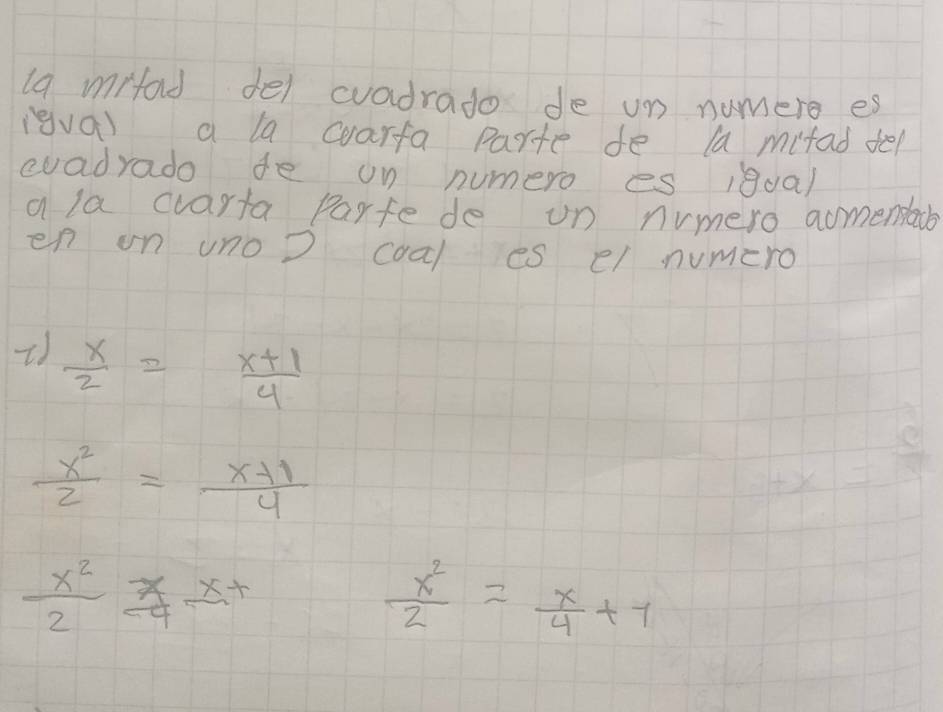 la mitad del cuadrado de un numero es
igual a la cuarta parte de la mitad del
cuadrado de un numero es igual
a la cuarta parte de un numero aumentado
en un uno cual es el numero
1) x/2 = x+1/4
x²/2 = x+1/4
x²/2 x/4 x+ x²/2 = x/4 + 1